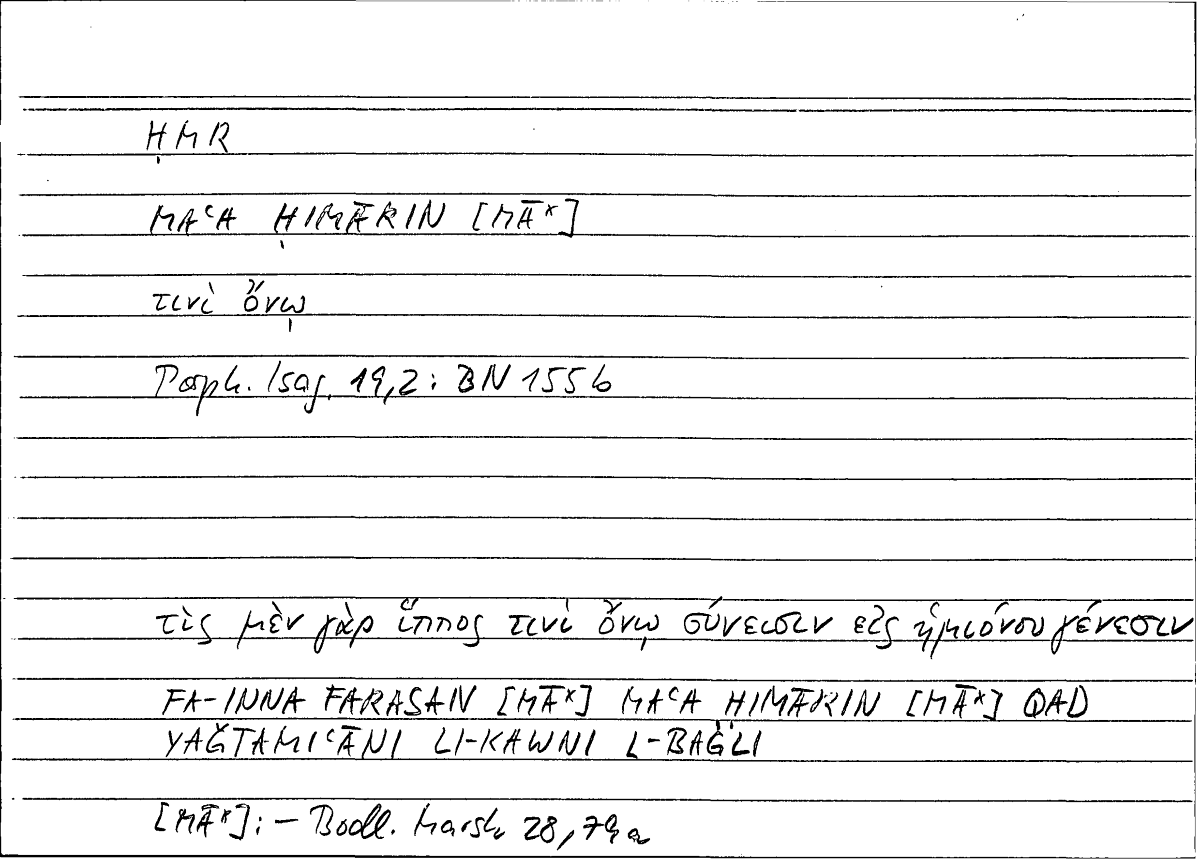 ḤMR
MAʿA ḤIMĀRIN [MĀ*]
τινὶ ὄνῳ
Porph. Isag. 19,2: BN 155b
τὶς μὲν γὰρ ἵππος τινὶ ὄνῳ σύνεισιν εἰς ἡμιόνου γένεσιν
FA-INNA FARASAN [MĀ*] MAʿA ḤIMĀRIN [MĀ*] QAD
YAǦTAMIʿĀNI LI-KAWNI L-BAĠLI
[MĀ*]: – Bodl. Marsh 28,79a